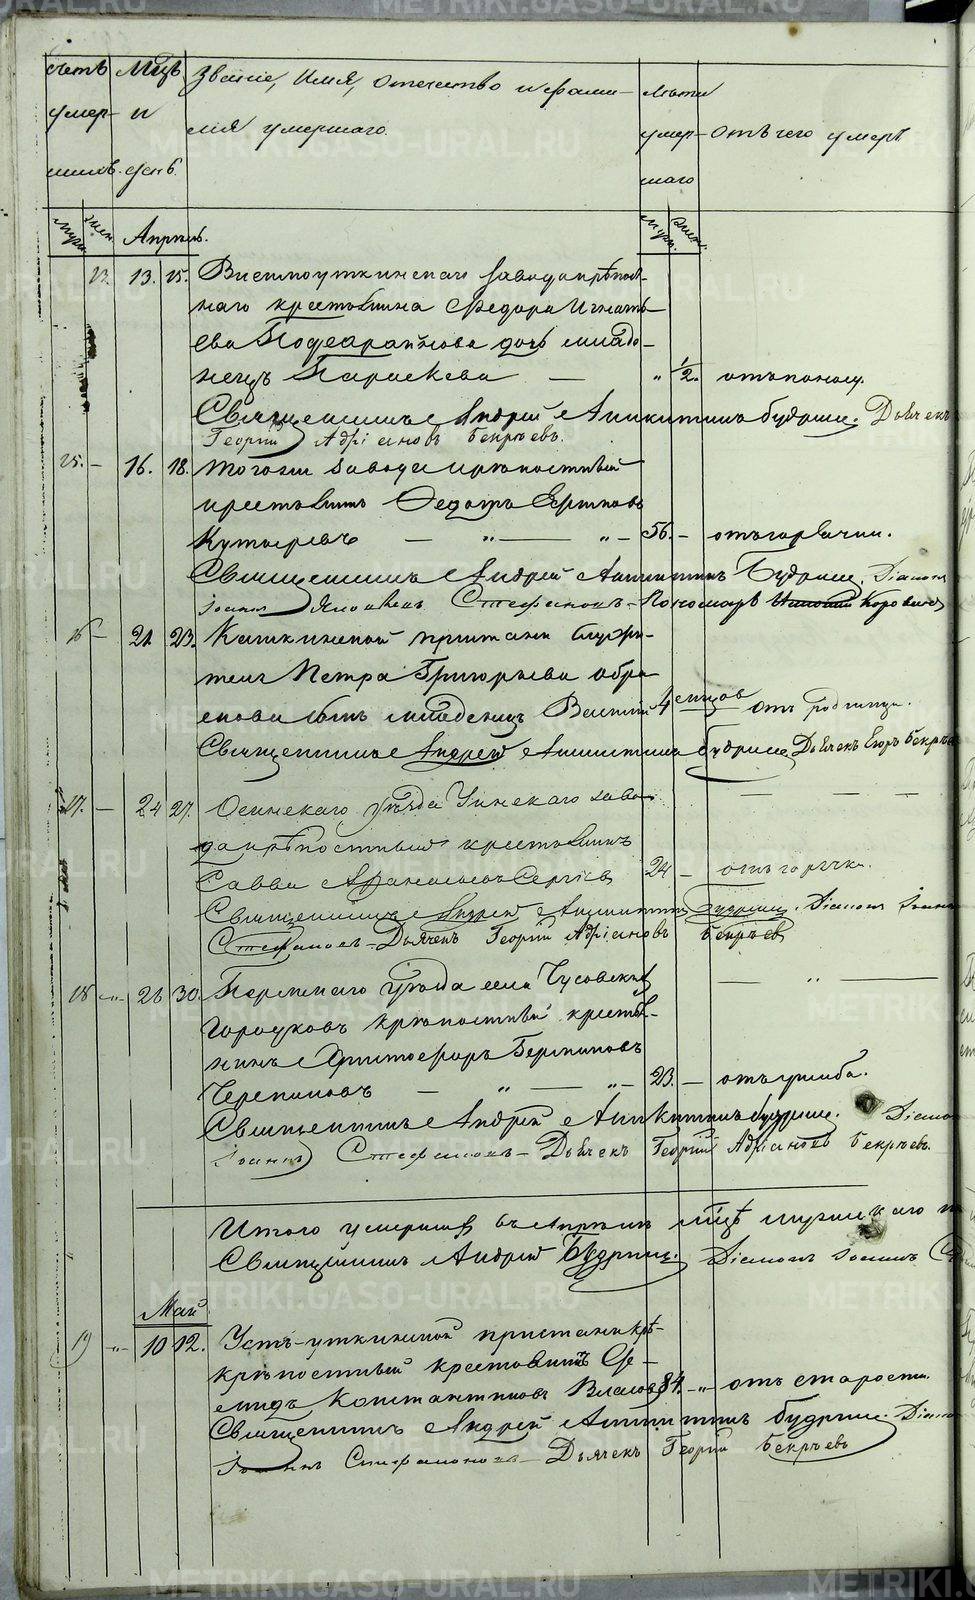 счетъ Мцъ Званіе, Имя, отечество и фами- лѣта
умер- и лія умершаго. умер- отъ чего умеръ
шихъ. день. шаго
муж. жен. Апрѣль. муж. жен.
13. 13. 15. Висимоуткинскаго завода крѣпост-
наго крестьянина Федора Игнать-
ева дочь младе-
нецъ Параскева — „ 1/2. отъ поносу.
Священникъ Андрей Аникитинъ Будринъ. Дьячекъ
Георгій Адріановъ Бекрѣевъ.
15. — 16. 18. Тогожъ завода крѣпостный
крестьянинъ Федотъ
— „ — „ — 56. — отъ горячки.
Священникъ Андрей Аникитинъ Будринъ. Діаконъ
Іоаннъ Яковлевъ Стефановъ — Пономарь
16 — 21 23. Кашкинской пристани служи-
теля Петра Григорьева
сынъ младенецъ Василій 4 мцовъ отъ родимца.
Священникъ Андрей Аникитинъ Будринъ Дьячекъ Егоръ Бекрѣевъ
17. — 24 27. Осинскаго уѣзда Уинскаго заво-
да крѣпостный крестьянинъ
Савва Афанасьевъ Сергѣевъ 24 — отъ горячки.
Священникъ Андрей Аникитинъ Будринъ. Діаконъ Іоаннъ
Стефановъ — Дьячекъ Георгій Адріановъ Бекрѣевъ
18 — „ — 26 30. Пермскаго уѣзда села Чусовскихъ
Городковъ крѣпостный кресть-
янинъ Христофоръ
Черепановъ — „ — „ — 23. — отъ ушиба.
Священникъ Андрей Аникитинъ Будринъ. Діаконъ
Іоаннъ Стефановъ — Дьячекъ Георгій Адріановъ Бекрѣевъ.
Итого умершихъ въ Апрѣлѣ мцѣ мужескаго
Священникъ Андрей Будринъ. Діаконъ Іоаннъ
Май
19 — „ — 10 12. Устъ-уткинской пристани крѣ-
крѣпостный крестьянинъ
Константиновъ Власовъ 84. — „ отъ старости.
Священникъ Андрей Аникитинъ Будринъ. Діаконъ
Іоаннъ Стефановъ — Дьячекъ Георгій Бекрѣевъ
METRIKI.GASO-URAL.RU